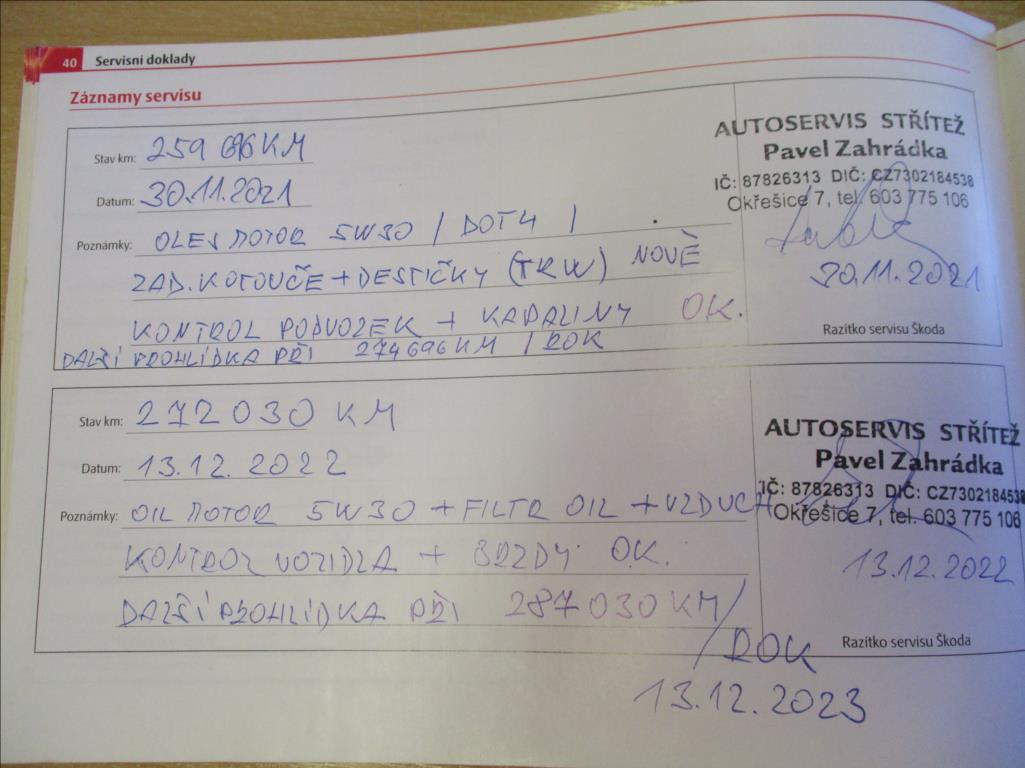 40 Servisní doklady
Záznamy servisu
Stav km: 259 696 KM
Datum: 30.11.2021
Poznámky: OLEJ MOTOR 5W30 / DOT4 /
ZAD. KOTOUČE + DESTIČKY (TRW) NOVÉ
KONTROL PODVOZEK + KAPALINY OK.
DALŠÍ PROHLÍDKA PŘI 274696 KM / ROK
AUTOSERVIS STŘÍTEŽ
Pavel Zahrádka
IČ: 87826313 DIČ: CZ7302184538
Okřešice 7, tel. 603 775 106
30.11.2021
Razítko servisu Škoda
Stav km: 272 030 KM
Datum: 13.12.2022
Poznámky: OIL MOTOR 5W30 + FILTR OIL + VZDUCH
KONTROL VOZIDLA + BRZDY OK.
DALŠÍ PROHLÍDKA PŘI 287 030 KM /
/ ROK
13.12.2023
AUTOSERVIS STŘÍTEŽ
Pavel Zahrádka
IČ: 87826313 DIČ: CZ7302184538
Okřešice 7, tel. 603 775 106
13.12.2022
Razítko servisu Škoda